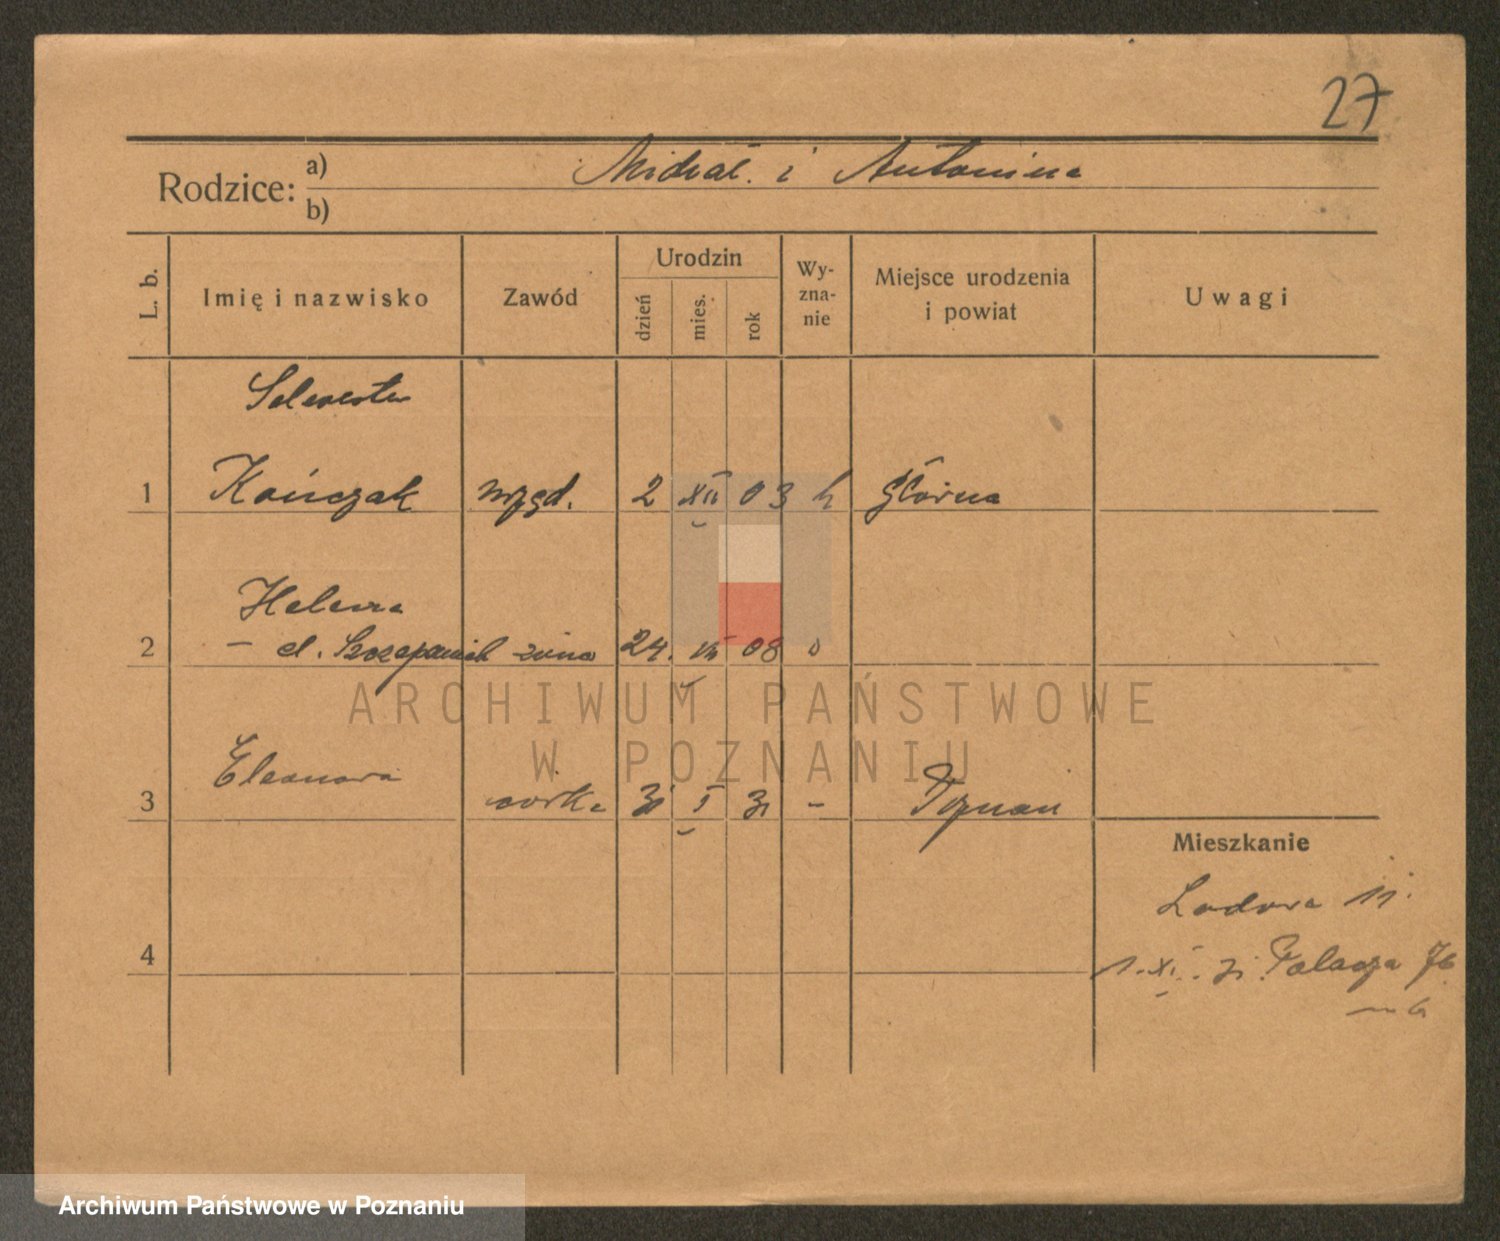 27
Rodzice: a) Michał i Antonina
b)
L. b. Imię i nazwisko Zawód Urodzin dzień mies. rok Wy-zna-nie Miejsce urodzenia i powiat Uwagi
Sylwester
1 Kończak urzęd. 2 XII 03 k Główna
Helena
2 — d. Szczepaniak żona 24. 08
Eleonora
3 córka 31 I 31 – Poznań
Mieszkanie
11.
4
1. XI. 31. Palacza 76
m 6
ARCHIWUM PAŃSTWOWE
W POZNANIU
Archiwum Państwowe w Poznaniu